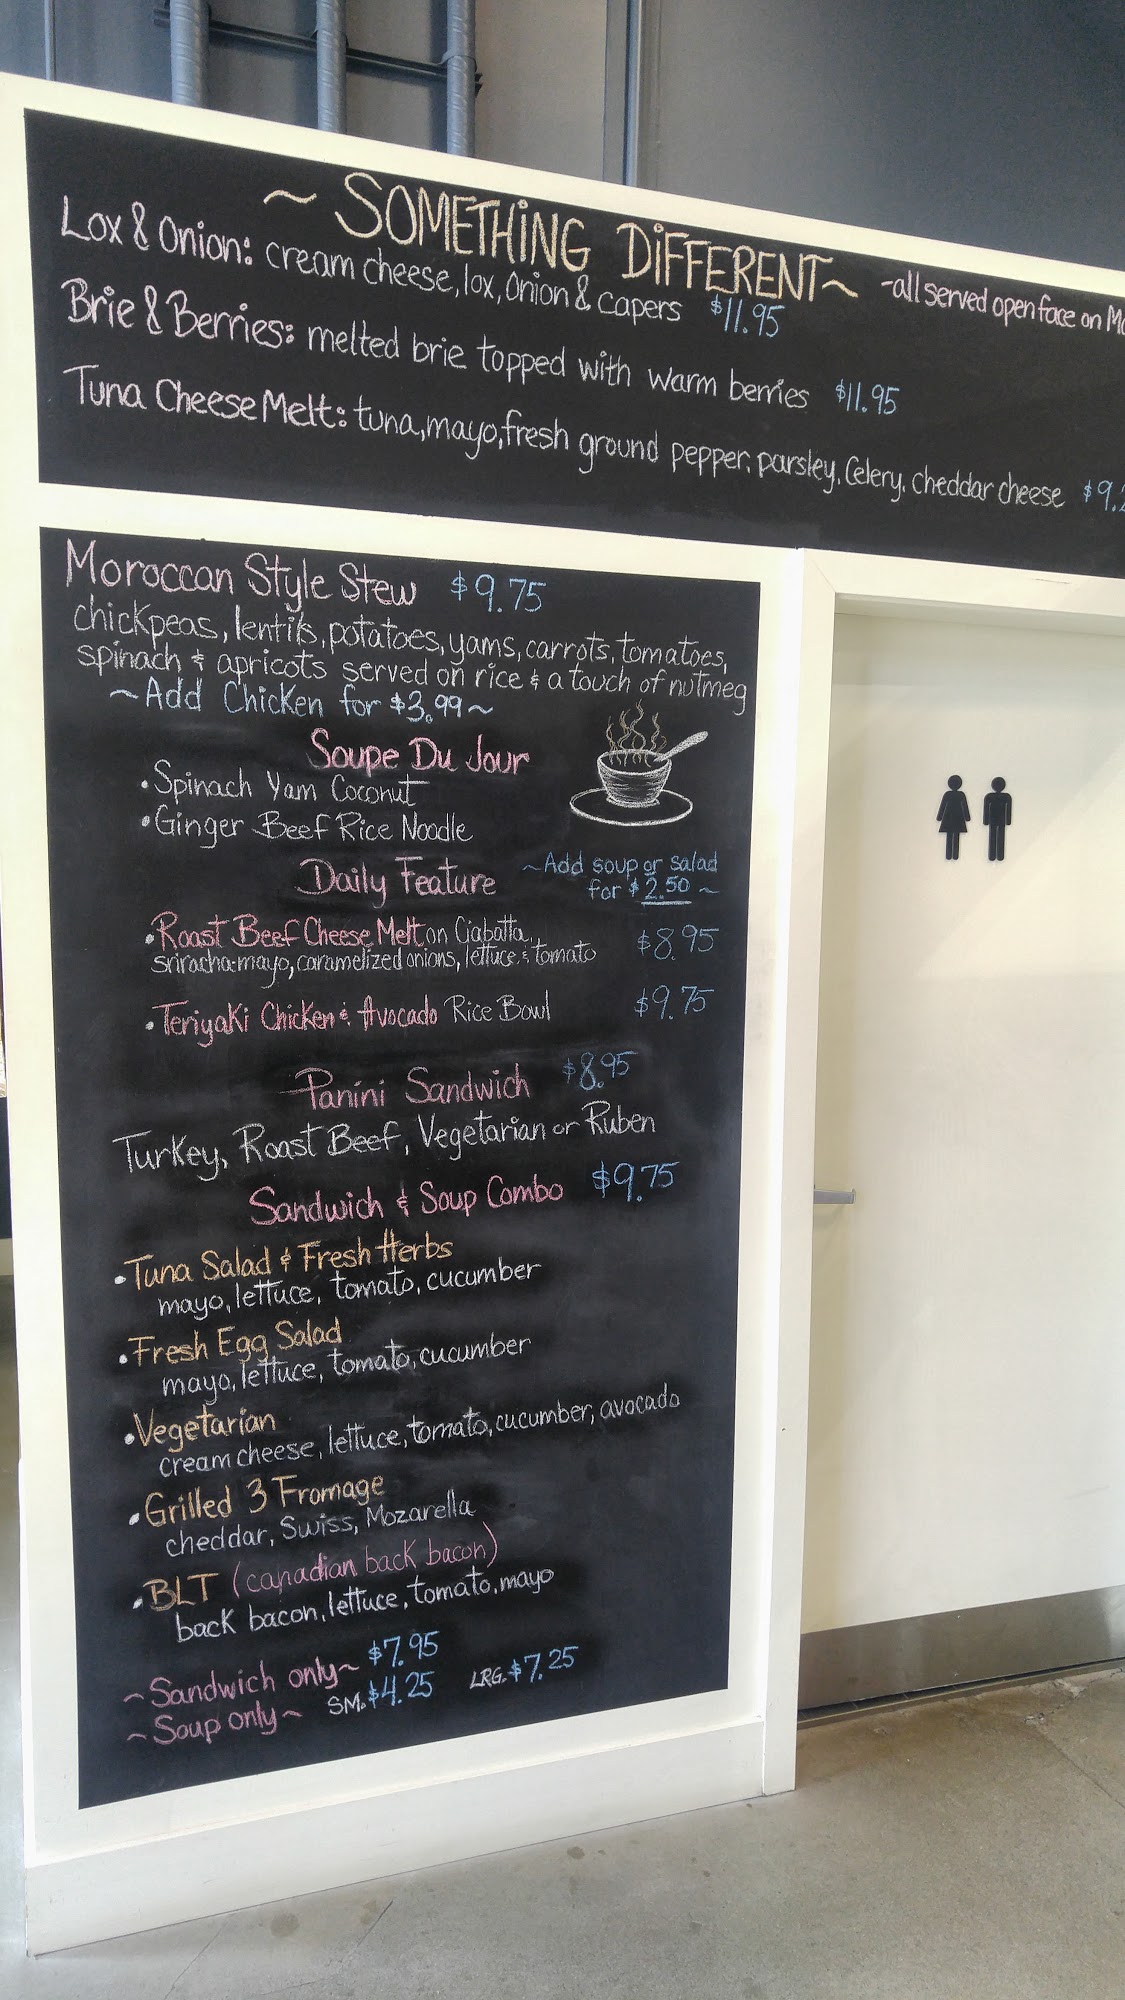 ~ SOMETHING DIFFERENT ~ -all served open face on
Lox & Onion: cream cheese, lox, onion & capers $11.95
Brie & Berries: melted brie topped with warm berries $11.95
Tuna Cheese Melt: tuna, mayo, fresh ground pepper, parsley, Celery, cheddar cheese
Moroccan Style Stew $9.75
chickpeas, lentils, potatoes, yams, carrots, tomatoes,
spinach & apricots served on rice & a touch of nutmeg
~Add Chicken for $3.99~
Soupe Du Jour
•Spinach Yam Coconut
•Ginger Beef Rice Noodle
Daily Feature
~Add soup or salad
for $2.50~
•Roast Beef Cheese Melt on Ciabatta, $8.95
sriracha-mayo, caramelized onions, lettuce & tomato
•Teriyaki Chicken & Avocado Rice Bowl $9.75
Panini Sandwich $8.95
Turkey, Roast Beef, Vegetarian or Ruben
Sandwich & Soup Combo $9.75
•Tuna Salad & Fresh Herbs
mayo, lettuce, tomato, cucumber
•Fresh Egg Salad
mayo, lettuce, tomato, cucumber
•Vegetarian
cream cheese, lettuce, tomato, cucumber, avocado
•Grilled 3 Fromage
cheddar, Swiss, Mozarella
•BLT (canadian back bacon)
back bacon, lettuce, tomato, mayo
~Sandwich only~ $7.95
~Soup only~ SM. $4.25 LRG. $7.25